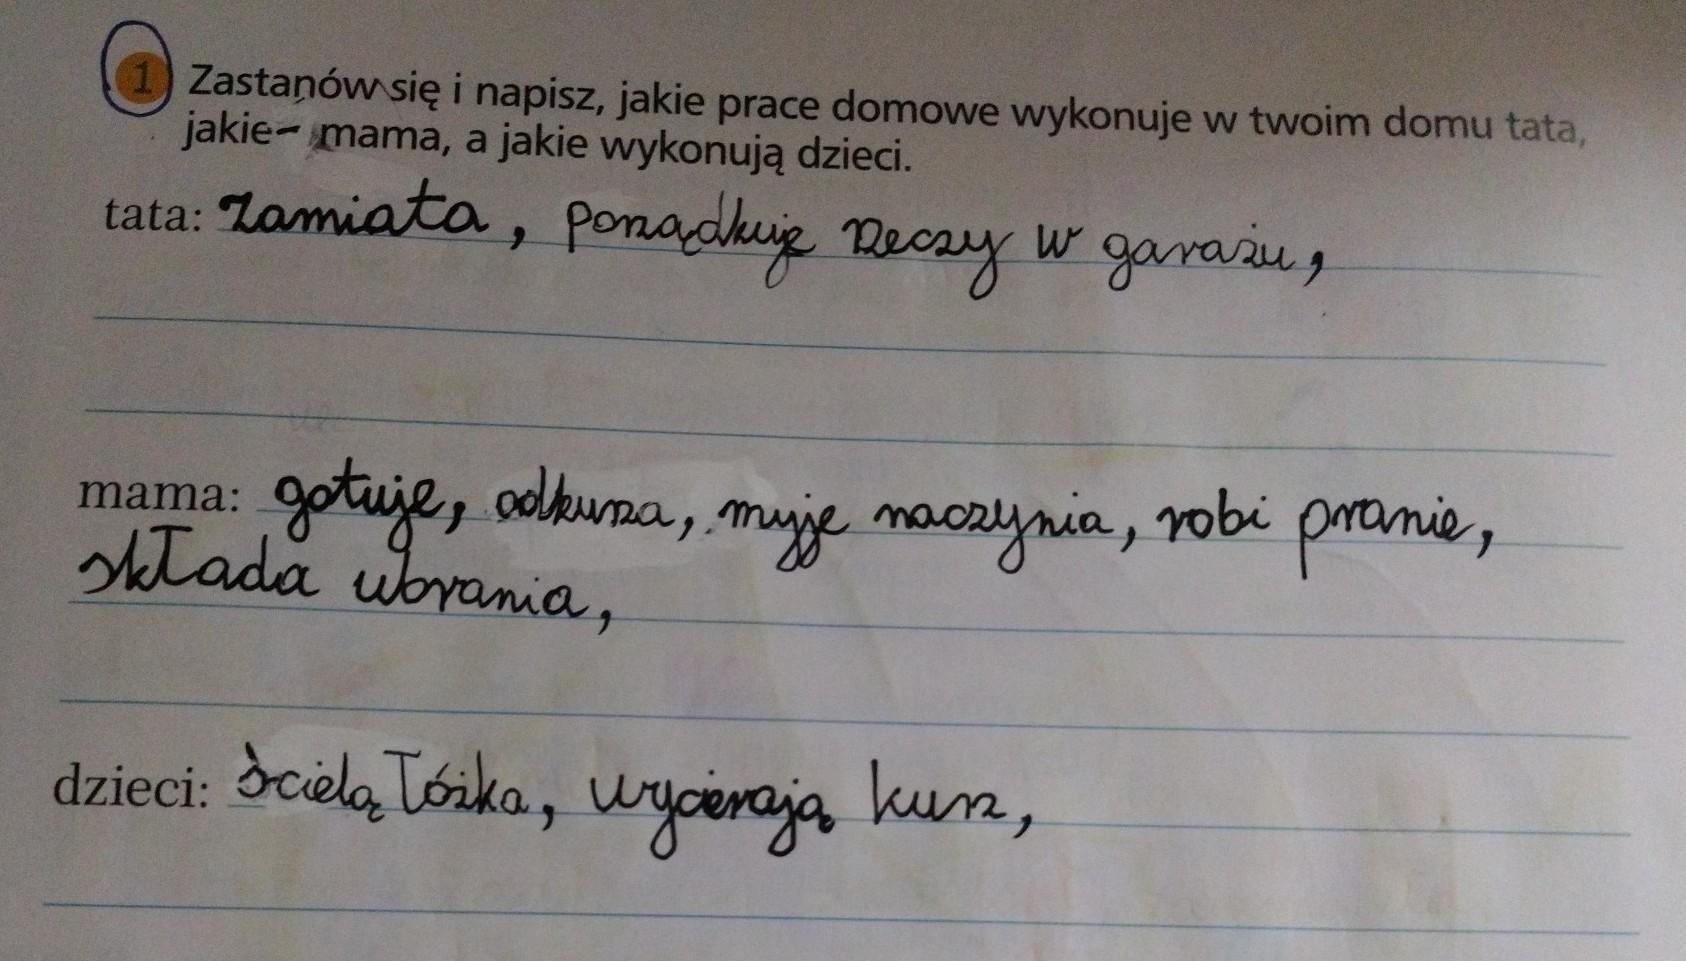 1 Zastanów się i napisz, jakie prace domowe wykonuje w twoim domu tata,
jakie – mama, a jakie wykonują dzieci.
tata: zamiata, porządkuje rzeczy w garażu,
mama: gotuje, odkurza, myje naczynia, robi pranie,
składa ubrania,
dzieci: ścielą łóżka, wycierają kurz,